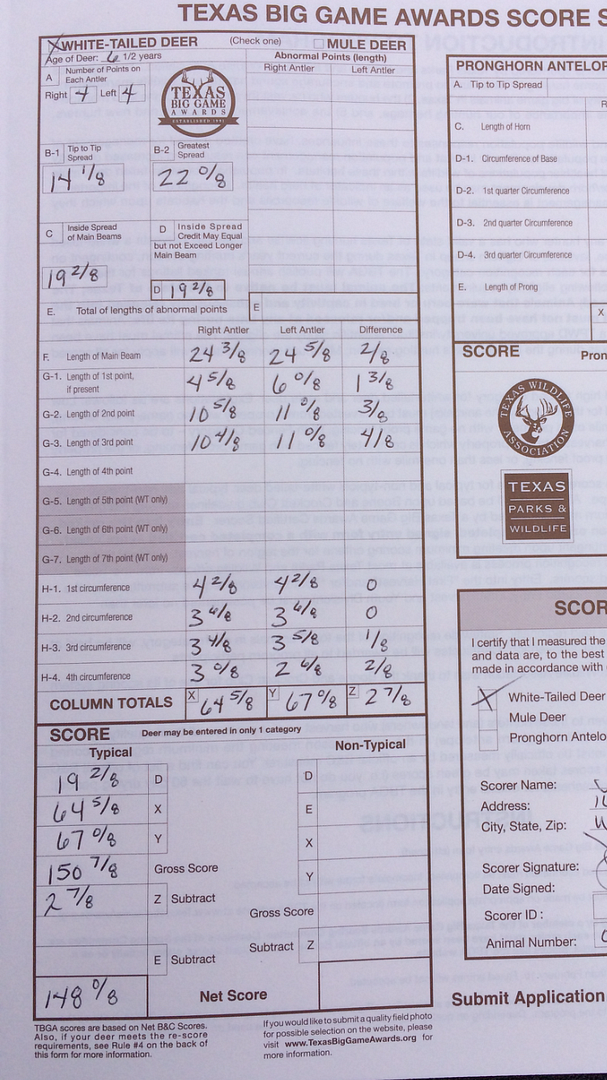 TEXAS BIG GAME AWARDS SCORE S
X WHITE-TAILED DEER (Check one) MULE DEER
Age of Deer: 6 1/2 years
Abnormal Points (length)
Right Antler Left Antler
A Number of Points on Each Antler
Right 4 Left 4
TEXAS
BIG GAME
AWARDS
ESTABLISHED 1991
B-1 Tip to Tip Spread
14 1/8
B-2 Greatest Spread
22 0/8
C Inside Spread of Main Beams
19 2/8
D Inside Spread
Credit May Equal
but not Exceed Longer
Main Beam
D 19 2/8
E. Total of lengths of abnormal points E
Right Antler Left Antler Difference
F. Length of Main Beam 24 3/8 24 5/8 2/8
G-1. Length of 1st point, if present 4 5/8 6 0/8 1 3/8
G-2. Length of 2nd point 10 5/8 11 0/8 3/8
G-3. Length of 3rd point 10 4/8 11 0/8 4/8
G-4. Length of 4th point
G-5. Length of 5th point (WT only)
G-6. Length of 6th point (WT only)
G-7. Length of 7th point (WT only)
H-1. 1st circumference 4 2/8 4 2/8 0
H-2. 2nd circumference 3 6/8 3 6/8 0
H-3. 3rd circumference 3 4/8 3 5/8 1/8
H-4. 4th circumference 3 0/8 2 6/8 2/8
COLUMN TOTALS X 64 5/8 Y 67 0/8 Z 2 7/8
SCORE Deer may be entered in only 1 category
Typical
Non-Typical
19 2/8 D
64 5/8 X
67 0/8 Y
150 7/8 Gross Score
2 7/8 Z Subtract
E Subtract
148 0/8 Net Score
D
E
X
Y
Gross Score
Subtract Z
TBGA scores are based on Net B&C Scores.
Also, if your deer meets the re-score
requirements, see Rule #4 on the back of
this form for more information.
If you would like to submit a quality field photo
for possible selection on the website, please
visit www.TexasBigGameAwards.org for
more information.
PRONGHORN ANTELO
A. Tip to Tip Spread
R
C. Length of Horn
D-1. Circumference of Base
D-2. 1st quarter Circumference
D-3. 2nd quarter Circumference
D-4. 3rd quarter Circumference
E. Length of Prong
X
SCORE Pron
TEXAS WILDLIFE
ASSOCIATION
TEXAS
PARKS &
WILDLIFE
SCOR
I certify that I measured the
and data are, to the best
made in accordance with
X White-Tailed Deer
Mule Deer
Pronghorn Antelo
Scorer Name:
Address:
City, State, Zip:
Scorer Signature:
Date Signed:
Scorer ID :
Animal Number:
Submit Application